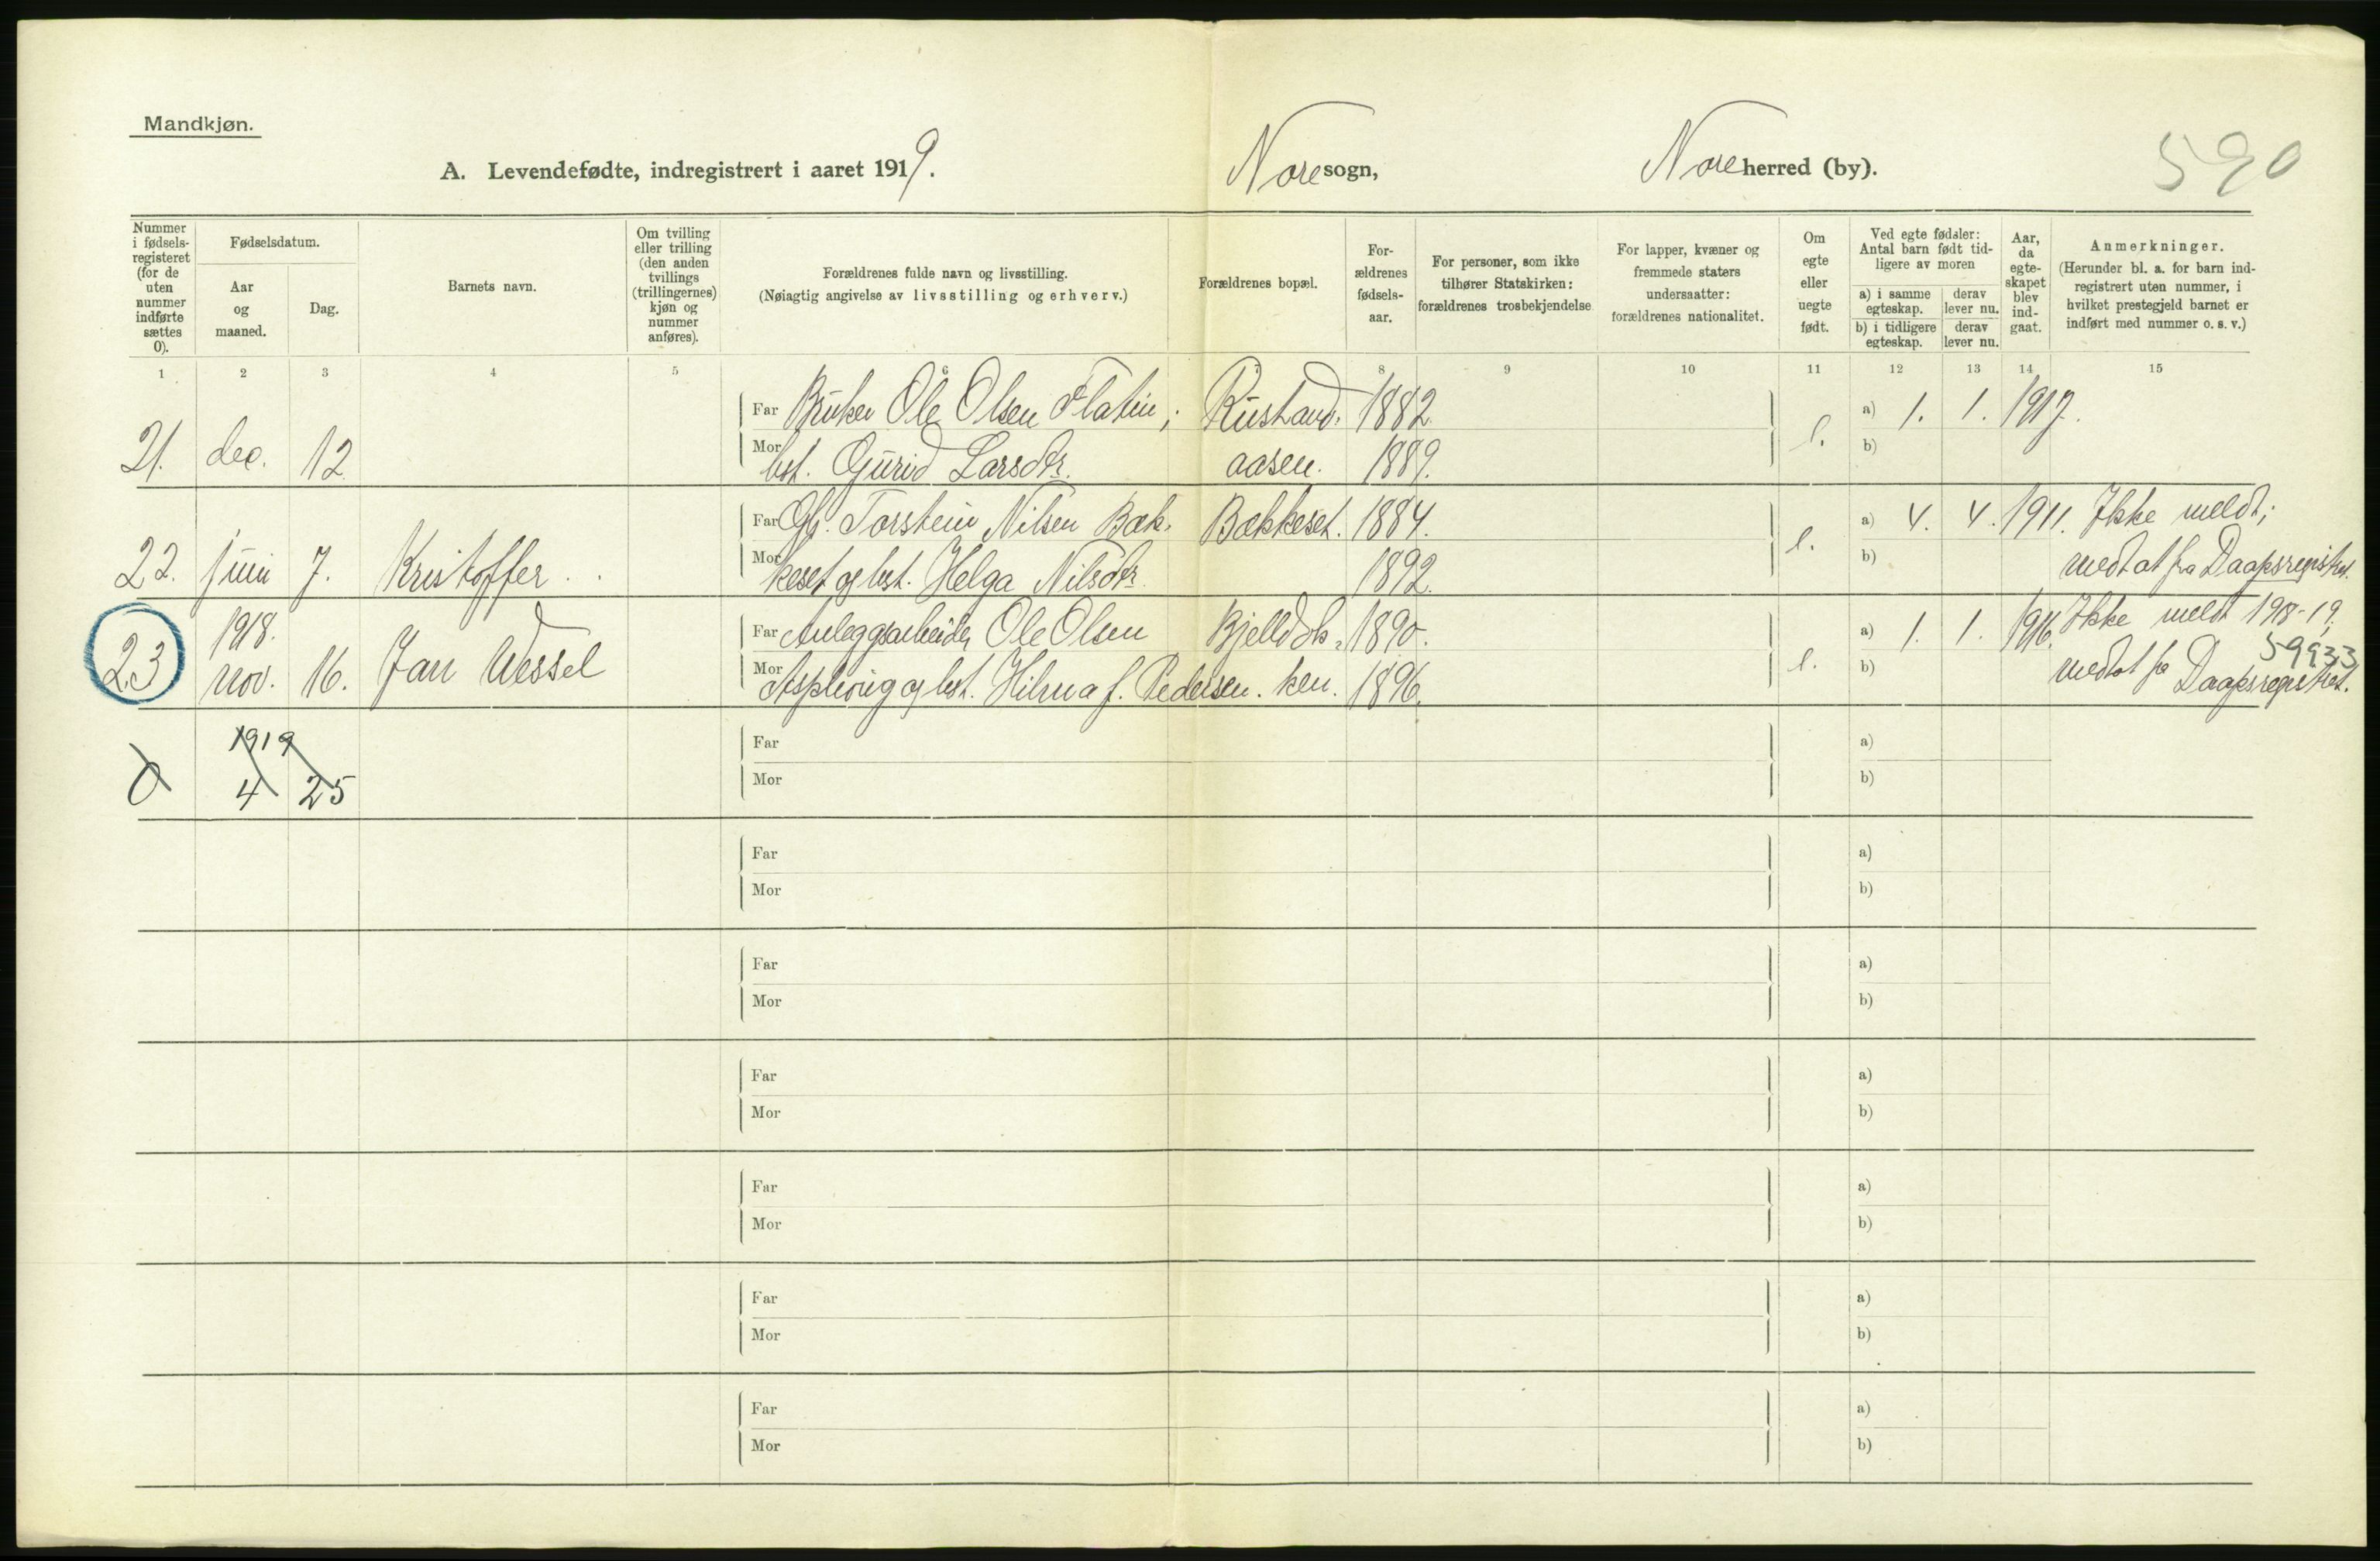 Mandkjøn.
A. Levendefødte, indregistrert i aaret 1919. Nore sogn, Nore herred (by). 590
Nummer i fødsels-registeret (for de uten nummer indførte sættes 0).
Fødselsdatum.
Aar og maaned.
Dag.
Barnets navn.
Om tvilling eller trilling (den anden tvillings (trillingernes) kjøn og nummer anføres).
Forældrenes fulde navn og livsstilling.
(Nøiagtig angivelse av livsstilling og erhverv.)
Forældrenes bopæl.
For-ældrenes fødsels-aar.
For personer, som ikke tilhører Statskirken: forældrenes trosbekjendelse
For lapper, kvæner og fremmede staters undersaatter: forældrenes nationalitet.
Om egte eller uegte født.
Ved egte fødsler: Antal barn født tid-ligere av moren
a) i samme egteskap. derav lever nu.
b) i tidligere egteskap. derav lever nu.
Aar, da egte-skapet blev ind-gaat.
Anmerkninger.
(Herunder bl. a. for barn ind-registrert uten nummer, i hvilket prestegjeld barnet er indført med nummer o. s. v.)
1 2 3 4 5 6 8 9 10 11 12 13 14 15
Far Bruker Ole Olsen Flatin; Rustand- 1882 a) 1. 1. 1917.
21. dec. 12 Mor hst. Gurid Larsdtr. aasen. 1889. e. b)
Far Gb. Torstein Nilsen Bæk- Bækkeset. 1884. a) 4. 4. 1911. Ikke meldt;
22. juni 7. Kristoffer Mor keset og hst. Helga Nilsdtr. 1892. e. b) medtat fra Daapsregistret.
1918. Far Anleggsarbeider Ole Olsen Bjelldok- 1890. a) 1. 1. 1916. Ikke meldt 1918-19;
59933
23 nov. 16. Jan Wessel Mor Asphoug og hst. Hilma f. Pedersen. ken. 1896. e. b) medtat fra Daapsregistret.
1919 Far a)
0 4 25 Mor b)
Far a)
Mor b)
Far a)
Mor b)
Far a)
Mor b)
Far a)
Mor b)
Far a)
Mor b)
Far a)
Mor b)